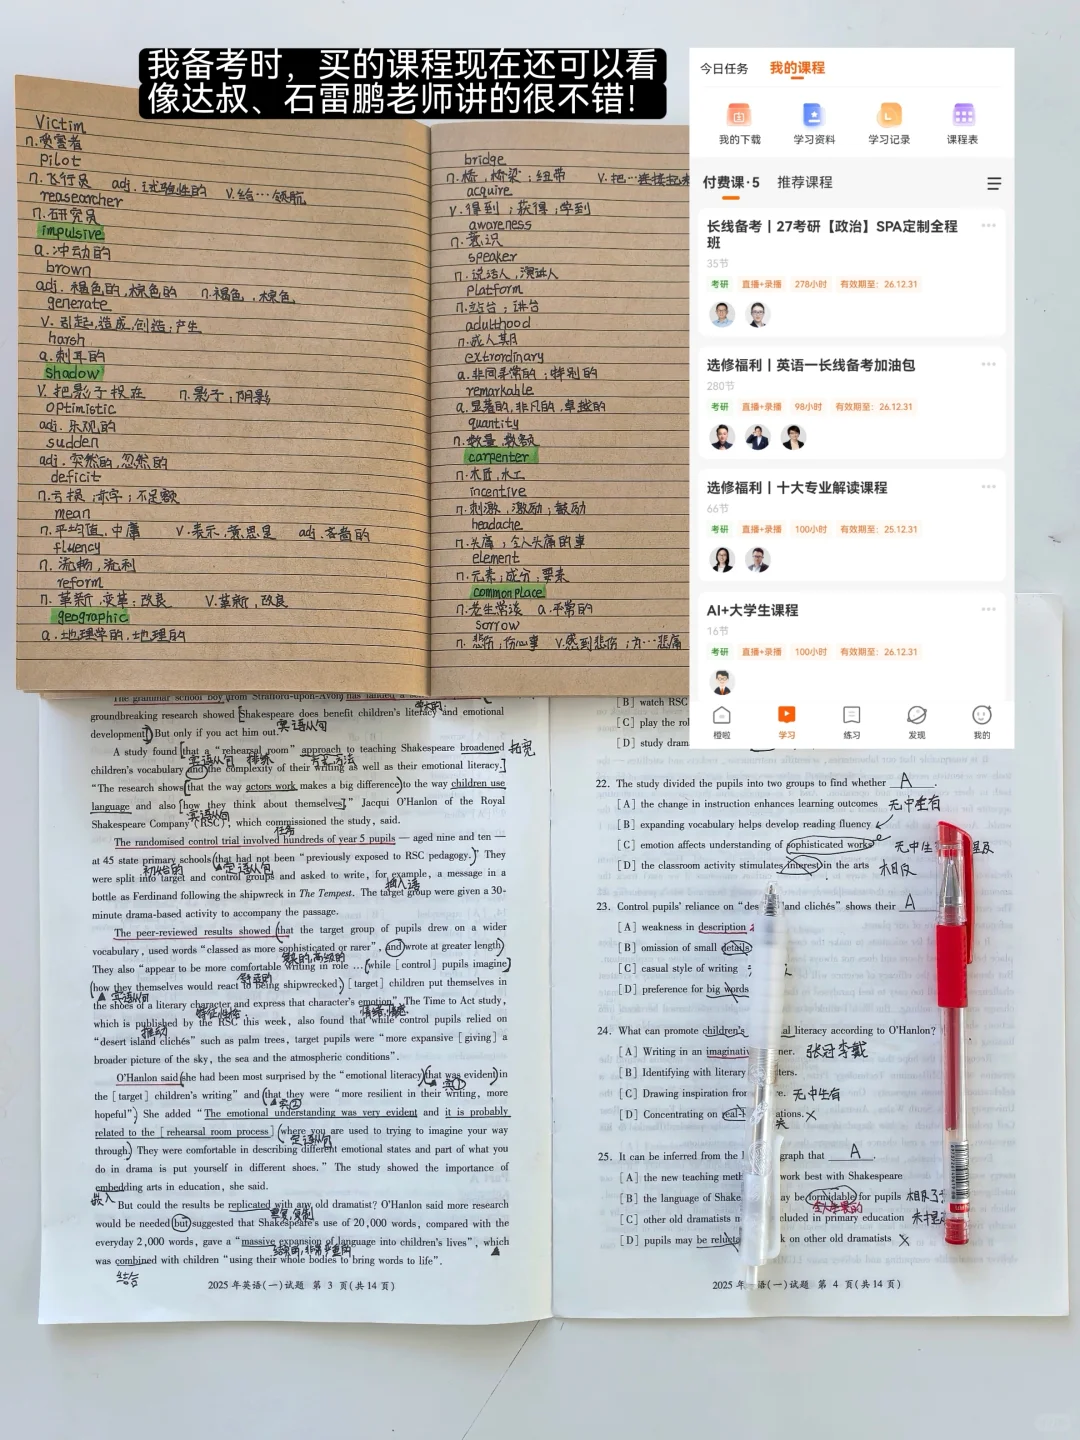 我备考时，买的课程现在还可以看
像达叔、石雷鹏老师讲的很不错！
今日任务 我的课程
我的下载 学习资料 学习记录 课程表
付费课·5 推荐课程
长线备考丨27考研【政治】SPA定制全程
班
35节
考研 直播+录播 278小时 有效期至：26.12.31
选修福利丨英语一长线备考加油包
280节
考研 直播+录播 98小时 有效期至：26.12.31
选修福利丨十大专业解读课程
66节
考研 直播+录播 100小时 有效期至：25.12.31
AI+大学生课程
16节
考研 直播+录播 100小时 有效期至：26.12.31
橙啦 学习 练习 发现 我的
Victim
n.受害者
Pilot
n.飞行员 adj.试验性的 v.给…领航
reasearcher
n.研究员
impulsive
a.冲动的
brown
adj.褐色的,棕色的 n.褐色,棕色
generate
v.引起,造成,创造;产生
harsh
a.刺耳的
shadow
v.把影子投在 n.影子;阴影
optimistic
adj.乐观的
sudden
adj.突然的,忽然的
deficit
n.亏损;赤字;不足额
mean
n.平均值,中庸 v.表示,意思是 adj.吝啬的
fluency
n.流畅,流利
reform
n.革新,变革;改良 v.革新,改良
geographic
a.地理学的,地理的
bridge
n.桥,桥梁;纽带 v.把…连接起来
acquire
v.得到;获得;学到
awareness
n.意识
speaker
n.说话人,演讲人
Platform
n.站台;讲台
adulthood
n.成人期
extrordinary
a.非同寻常的;特别的
remarkable
a.显著的,非凡的,卓越的
quantity
n.数量,数额
carpenter
n.木匠,木工
incentive
n.刺激,激励;鼓励
headache
n.头痛;令人头痛的事
element
n.元素;成分;要素
commonplace
n.老生常谈 a.平常的
sorrow
n.悲伤;伤心事 v.感到悲伤;为…悲痛
The grammar school boy from Stratford-upon-Avon has landed a
groundbreaking research showed Shakespeare does benefit children's literacy and emotional
development. But only if you act him out.
宾语从句
A study found that a "rehearsal room" approach to teaching Shakespeare broadened 拓宽
宾语从句 排练 方式,方法
children's vocabulary and the complexity of their writing as well as their emotional literacy.
"The research shows that the way actors work makes a big difference to the way children use
language and also how they think about themselves," Jacqui O'Hanlon of the Royal
宾语从句
Shakespeare Company (RSC), which commissioned the study, said.
任务
The randomised control trial involved hundreds of year 5 pupils — aged nine and ten —
at 45 state primary schools that had not been "previously exposed to RSC pedagogy." They
初始的 定语从句
were split into target and control groups and asked to write, for example, a message in a
插入语
bottle as Ferdinand following the shipwreck in The Tempest. The target group were given a 30-
minute drama-based activity to accompany the passage.
The peer-reviewed results showed that the target group of pupils drew on a wider
vocabulary, used words "classed as more sophisticated or rarer", and wrote at greater length
They also "appear to be more comfortable writing in role … while [control] pupils imagine
how they themselves would react to being shipwrecked, [target] children put themselves in
舒适的
宾语从句
the shoes of a literary character and express that character's emotion". The Time to Act study,
特征,性格 情绪,情感
which is published by the RSC this week, also found that while control pupils relied on
推动
"desert island clichés" such as palm trees, target pupils were "more expansive [giving] a
broader picture of the sky, the sea and the atmospheric conditions".
O'Hanlon said she had been most surprised by the "emotional literacy that was evident in
宾①
the [target] children's writing" and that they were "more resilient in their writing, more
宾②
hopeful". She added "The emotional understanding was very evident and it is probably
related to the [rehearsal room process] where you are used to trying to imagine your way
定语从句
through. They were comfortable in describing different emotional states and part of what you
do in drama is put yourself in different shoes." The study showed the importance of
embedding arts in education, she said.
嵌入
But could the results be replicated with any old dramatist? O'Hanlon said more research
would be needed but suggested that Shakespeare's use of 20,000 words, compared with the
everyday 2,000 words, gave a "massive expansion of language into children's lives", which
was combined with children "using their whole bodies to bring words to life".
结合
2025 年英语(一)试题 第 3 页(共14页)
[B] watch RSC
[C] play the rol
[D] study dram
22. The study divided the pupils into two groups to find whether A.
[A] the change in instruction enhances learning outcomes 无中生有
[B] expanding vocabulary helps develop reading fluency
[C] emotion affects understanding of sophisticated works
[D] the classroom activity stimulates interest in the arts 相反
23. Control pupils' reliance on "des and clichés" shows their A
[A] weakness in description
[B] omission of small details
[C] casual style of writing
[D] preference for big words
24. What can promote children's al literacy according to O'Hanlon?
[A] Writing in an imaginativ ner. 张冠李戴
[B] Identifying with literary ters.
[C] Drawing inspiration from e. 无中生有
[D] Concentrating on real- ations. X
25. It can be inferred from the l graph that A.
[A] the new teaching meth work best with Shakespeare
[B] the language of Shake ay be formidable for pupils 相反了
[C] other old dramatists n cluded in primary education
[D] pupils may be relucta k on other old dramatists X
2025 年 语(一)试题 第 4 页(共14页)